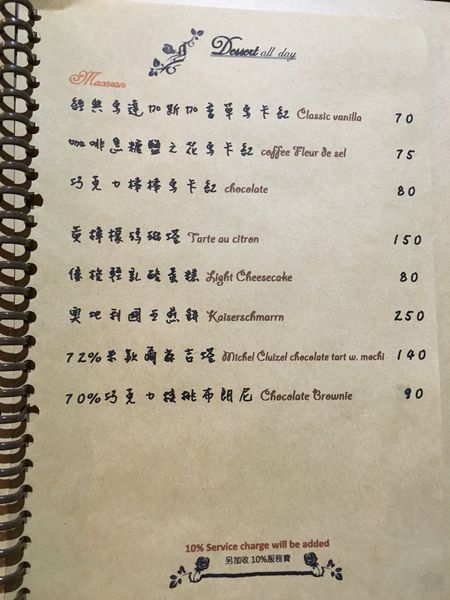 Dessert all day
Macaron
經典馬達加斯加香草馬卡紅 Classic vanilla 70
咖啡黑糖鹽之花馬卡紅 coffee Fleur de sel 75
巧克力棒棒馬卡紅 chocolate 80
黃檸檬瑪琳塔 Tarte au citron 150
輕乳酪蛋糕 Light Cheesecake 80
奧地利國王煎餅 Kaiserschmarrn 250
72%米歇爾麻吉塔 Michel Cluizel chocolate tart w. mochi 140
70%巧克力核桃布朗尼 Chocolate Brownie 90
10% Service charge will be added
另加收 10%服務費